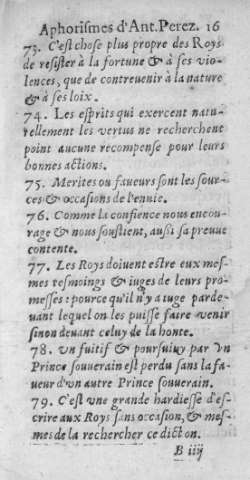 Aphorismes d'Ant. Perez. 16
73. C'est chose plus propre des Roys
de resister à la fortune & à ses vio-
lences, que de contreuenir à la nature
& à ses loix.
74. Les esprits qui exercent natu-
rellement les vertus ne recherchent
point aucune recompense pour leurs
bonnes actions.
75. Merites ou faueurs sont les sour-
ces & occasions de l'enuie.
76. Comme la confience nous encou-
rage & nous soustient, aussi sa preuue
contente.
77. Les Roys doiuent estre eux mes-
mes tesmoings & iuges de leurs pro-
messes: pource qu'il n'y a iuge parde-
uant lequel on les puisse faire venir
sinon deuant celuy de la honte.
78. Vn fuitif & poursuiuy par vn
Prince souuerain est perdu sans la fa-
ueur d'vn autre Prince souuerain.
79. C'est vne grande hardiesse d'es-
crire aux Roys sans occasion, & mes-
mes de la rechercher ce dict on.
B iiij